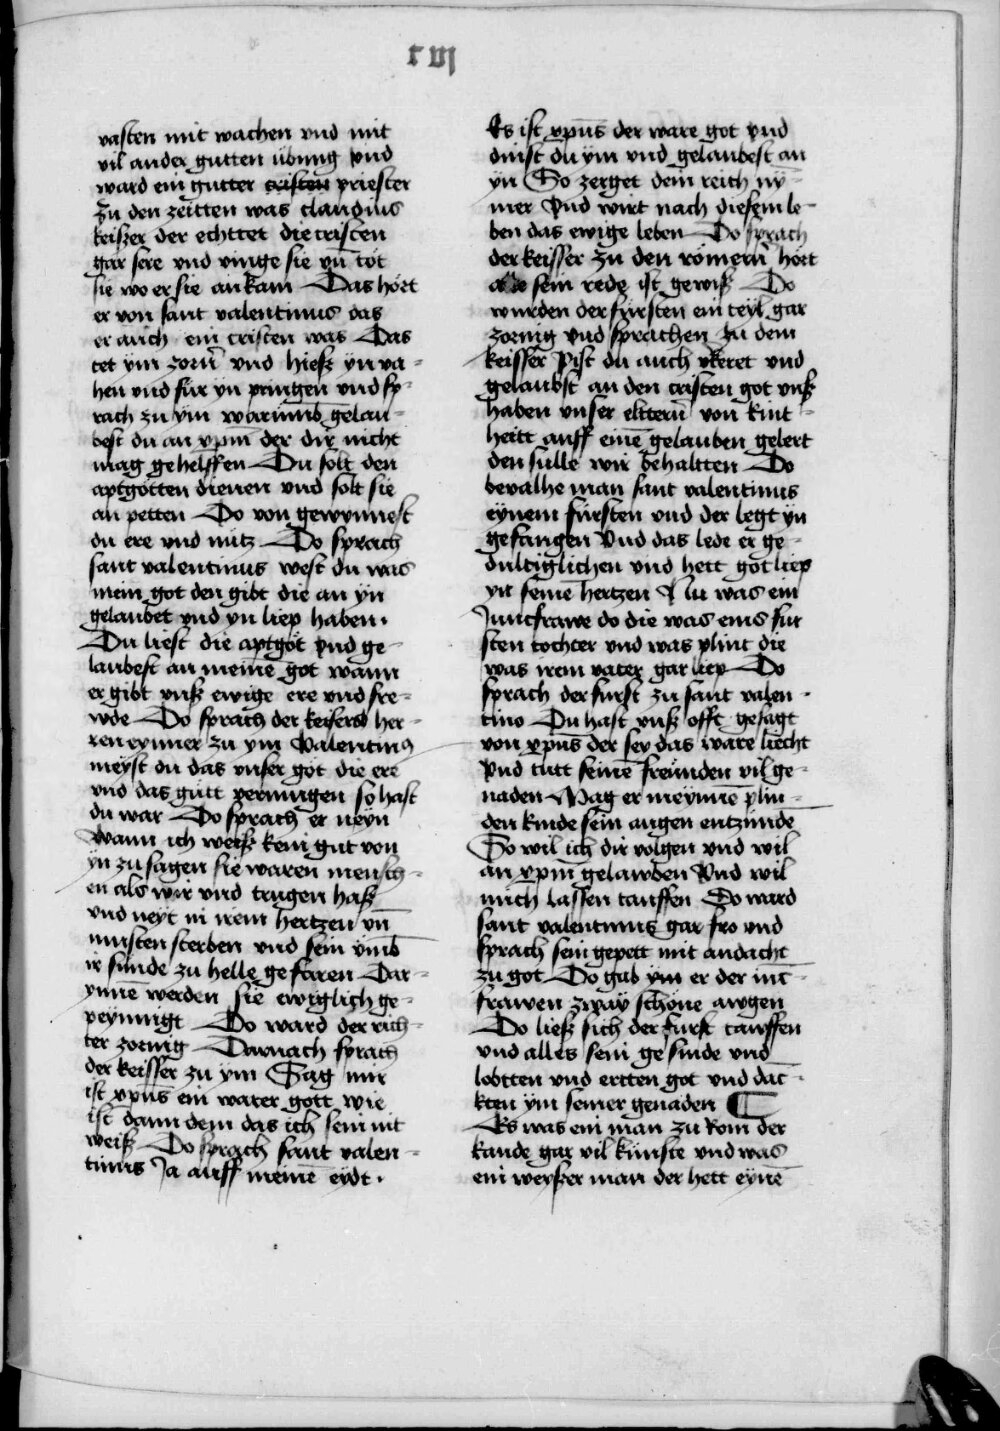 xvj
vasten mit wachen vnd mit
vil ander gutten übung vnd
ward ein gutter cristen priester
Zu den zeitten was claudius
keiszer der echttet die cristen
gar sere vnd vinge sie vn̄ tot
sie wo er sie ankam Das hört
er von sant valentinus das
er auch ein cristen was Das
tet ym zorn̄ vnd hiesz yn va-
hen vnd für yn pringen vnd sp-
rach zu ym warumb gelau-
best du an xpm̄ der dir nicht
mag gehelffen Du solt den
aptgötten dienen vnd solt sie
an petten Do von gewynnest
du ere vnd nutz Do sprach
sant valentinus west du was
mein got den gibt die an yn
gelaubet vnd yn liep haben.
Du liest die aptgöt vnd ge-
laubest an meinē got wann
er gibt vnsz ewige ere vnd fre-
wde Do sprach der keisers her-
ren eynner zu ym Valentinus
meyst du das vnser göt die ere
vnd das gütt vermügen so hast
du war Do sprach er neyn
Wann ich weisz kein gut von
yn zu sagen sie waren mensch-
en als wir vnd trugen hasz
vnd neyt in irem hertzen vn̄
musten sterben vnd sein vmb
ir sunde zu helle gefaren Dar-
ynnē werden sie ewiglich ge-
peynnigt Do ward der rich-
ter zornig Darnach sprach
der keisser zu ym Sag mir
ist xpūs ein warer gott wie
ist dann dem das ich sein nit
weisz Do sprach sant valen-
tinus Ja auff meinē eydt.
Es ist xpūs der ware got vnd
dinst du ym vnd gelaubest an
yn So zerget dein reich ny-
mer Vnd wirt nach diesem le-
ben das ewige leben Do sprach
der keisser zu den römern̄ hört
sein rede ist gewisz Do
wurden der fürsten ein teyl gar
zornig vnd sprachen zu dem
keisser Pist du auch vkeret vnd
gelaubst an den cristen got vnsz
haben vnser eltern̄ von kint-
heitt auff einē gelauben gelert
den sulle wir behaltten Do
bevalhe man sant valentinus
eynem fürsten vnd der legt yn
gefangen Vnd das lede er ge-
dultiglichen vnd hett got liep
yn seinē hertzen Nu was ein
Junckfrawe do die was eins fur
sten tochter vnd was plint die
was irem vater gar liep Do
sprach der furst zu sant valen-
tino Du hast vnsz offt gesagt
von xpūs der sey das ware liecht
Vnd tutt seinē freünden vil ge-
naden Mag er meynnē plin-
den kinde sein augen entzünde
So wil ich dir volgen vnd wil
an xpm̄ gelawben Vnd wil
mich lassen tauffen Do ward
sant valentinus gar fro vnd
sprach sein gepett mit andacht
zu got Do gab ym er der inc-
frawen zway schöne awgen
Do liesz sich der furst tawffen
vnd alles sein gesinde vnd
lobtten vnd ertten got vnd dāc-
kten ym seiner genaden
Es was ein man zu Rom der
kande gar vil künste vnd was
ein weyszer man der hett eynē